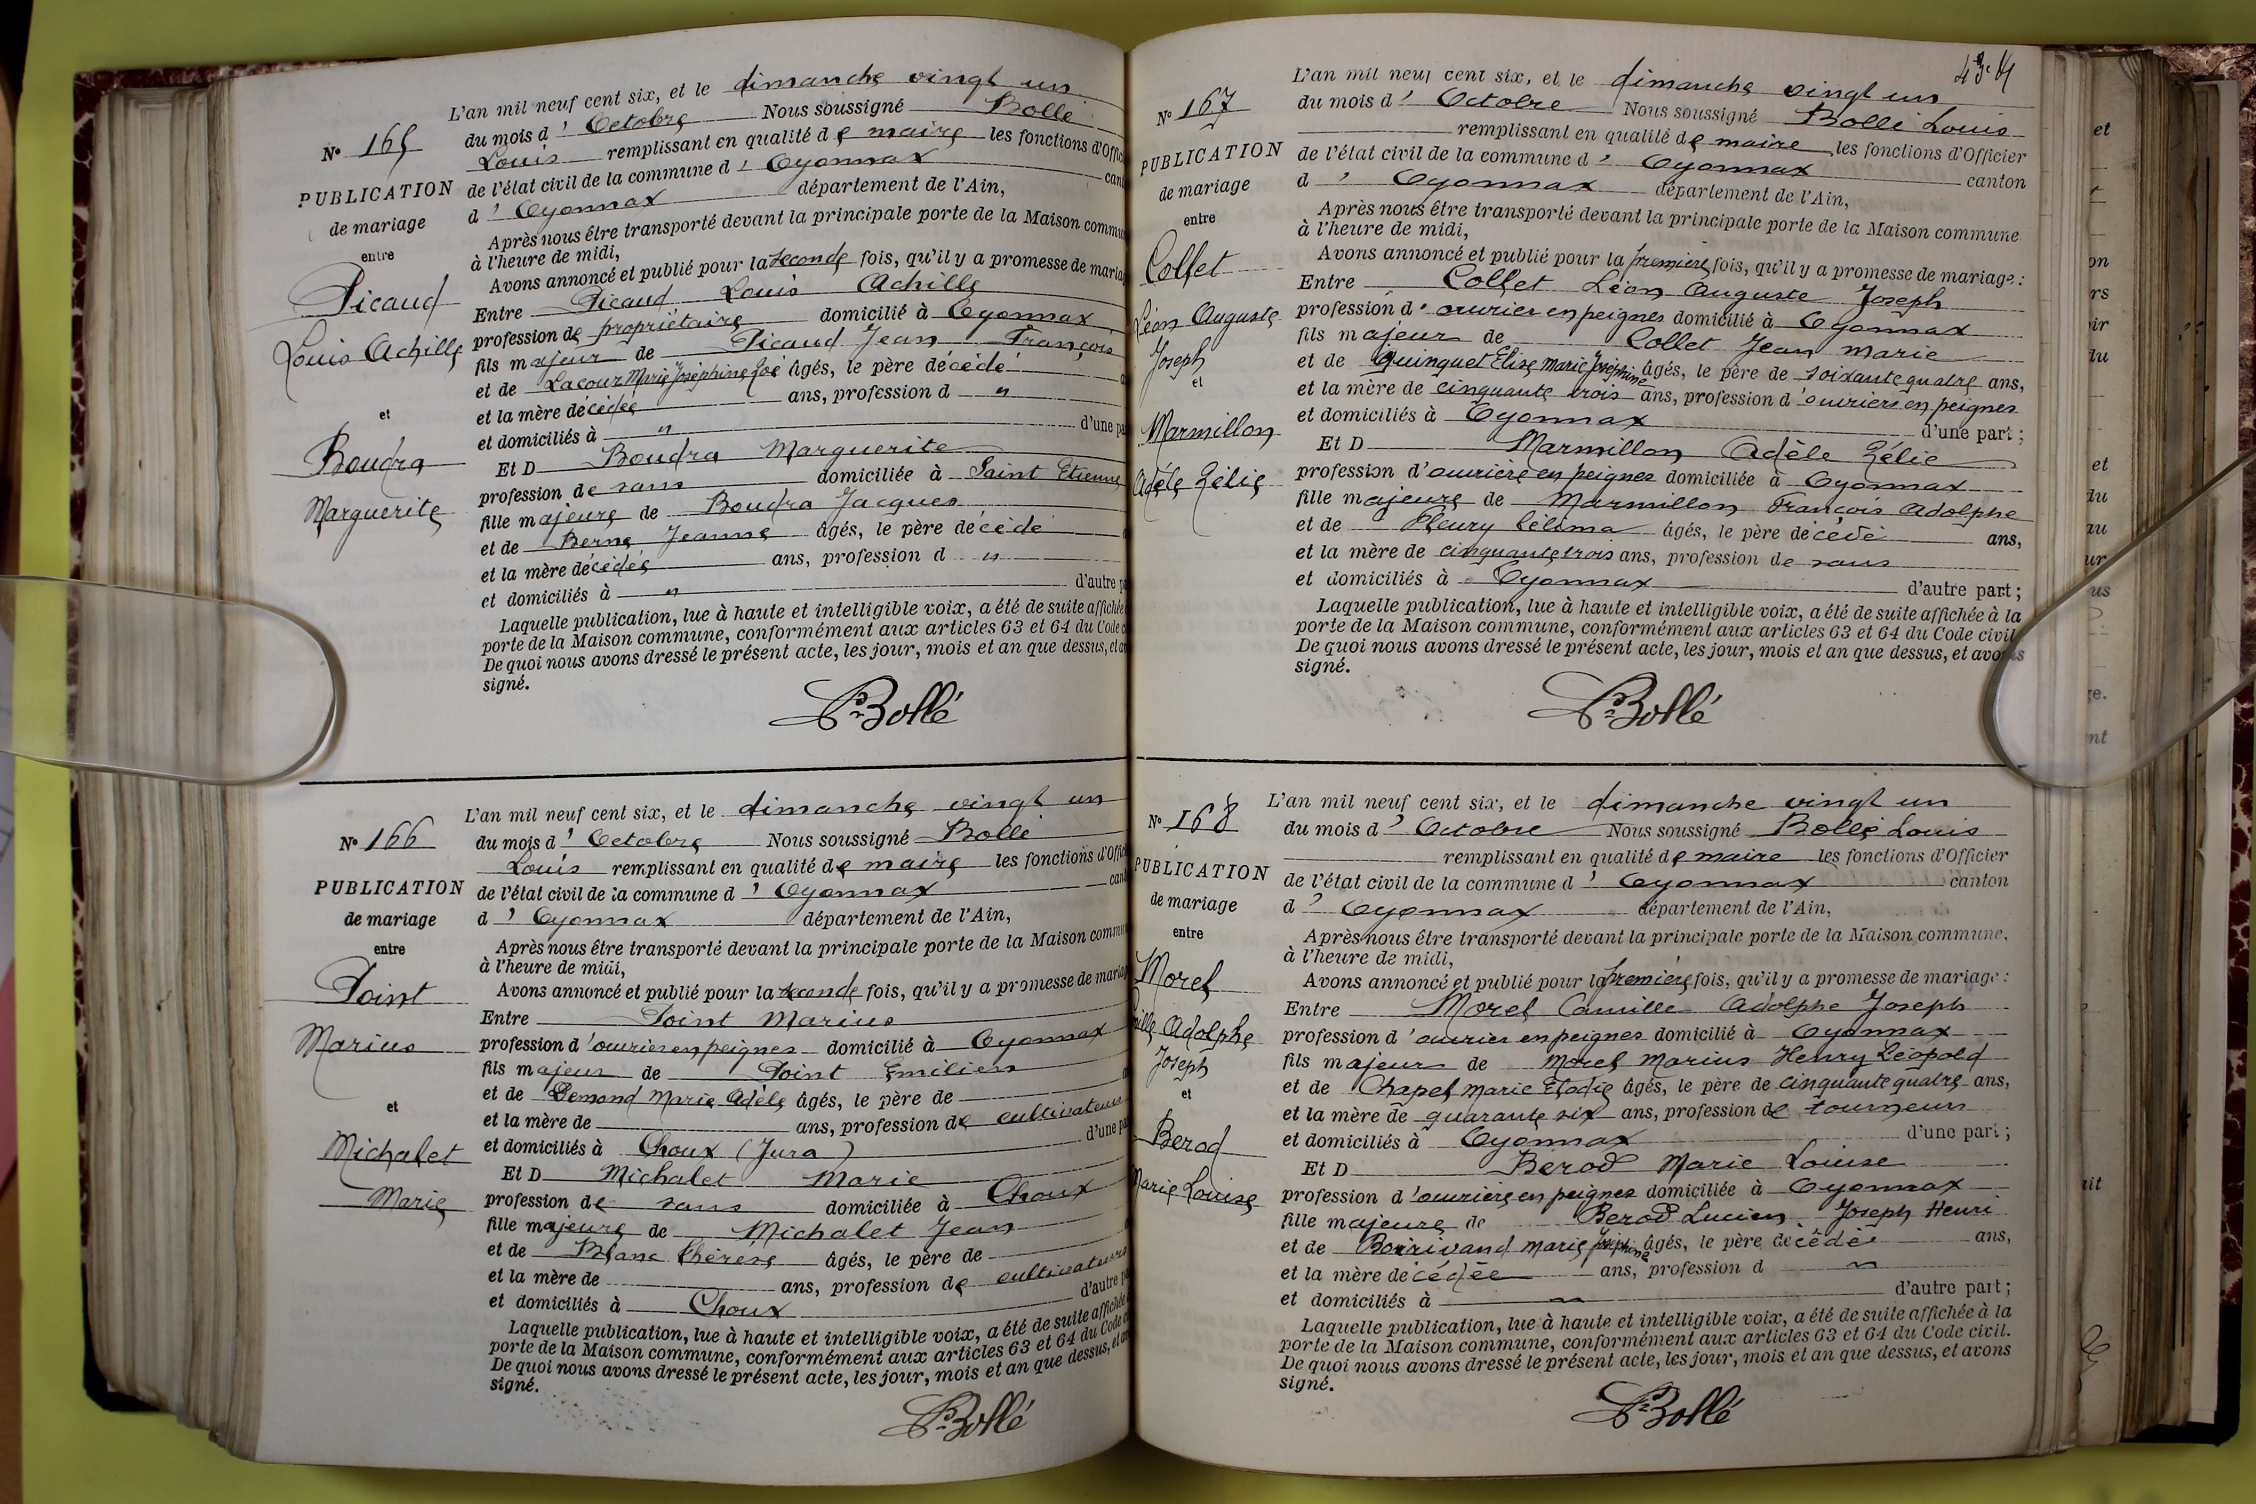 L'an mil neuf cent six, et le dimanche vingt un
Nº 165
du mois d' Octobre Nous soussigné Bollé
Louis remplissant en qualité de maire les fonctions d'Offici
PUBLICATION
de mariage
entre
de l'état civil de la commune d' Oyonnax cant
d' Oyonnax département de l'Ain,
Après nous être transporté devant la principale porte de la Maison commu
à l'heure de midi,
Avons annoncé et publié pour la seconde fois, qu'il y a promesse de maria
Picaud
Louis Achille
et
Boudra
Marguerite
Entre Picaud Louis Achille
profession de propriétaire domicilié à Oyonnax
fils majeur de Picaud Jean François
et de Lacour Marie Joséphine Zoé âgés, le père décédé
et la mère décédée ans, profession d "
et domiciliés à " d'une pa
Et D Boudra Marguerite
profession de sans domiciliée à Saint Etienne
fille majeure de Boudra Jacques
et de Berne Jeanne âgés, le père décédé
et la mère décédée ans, profession d "
et domiciliés à " d'autre pa
Laquelle publication, lue à haute et intelligible voix, a été de suite affichée
porte de la Maison commune, conformément aux articles 63 et 64 du Code c
De quoi nous avons dressé le présent acte, les jour, mois et an que dessus, et av
signé.
Bollé
L'an mil neuf cent six, et le dimanche vingt un
Nº 166
du mois d' Octobre Nous soussigné Bollé
Louis remplissant en qualité de maire les fonctions d'Offici
PUBLICATION
de mariage
entre
de l'état civil de la commune d' Oyonnax cant
d' Oyonnax département de l'Ain,
Après nous être transporté devant la principale porte de la Maison commun
à l'heure de midi,
Avons annoncé et publié pour la seconde fois, qu'il y a promesse de mariag
Point
Marius
et
Michalet
Marie
Entre Point Marius
profession d'ouvrier en peignes domicilié à Oyonnax
fils majeur de Point Emilien
et de Demond Marie Adèle âgés, le père de
et la mère de ans, profession de cultivateurs
et domiciliés à Choux (Jura) d'une pa
Et D Michalet Marie
profession de sans domiciliée à Choux
fille majeure de Michalet Jean
et de Blanc Thérèse âgés, le père de
et la mère de ans, profession de cultivateurs
et domiciliés à Choux d'autre pa
Laquelle publication, lue à haute et intelligible voix, a été de suite affichée
porte de la Maison commune, conformément aux articles 63 et 64 du Code c
De quoi nous avons dressé le présent acte, les jour, mois et an que dessus, et av
signé.
Bollé
L'an mil neuf cent six, et le dimanche vingt un
Nº 167
du mois d' Octobre Nous soussigné Bollé Louis
remplissant en qualité de maire les fonctions d'Officier
PUBLICATION
de mariage
entre
de l'état civil de la commune d' Oyonnax canton
d' Oyonnax département de l'Ain,
Après nous être transporté devant la principale porte de la Maison commune
à l'heure de midi,
Avons annoncé et publié pour la première fois, qu'il y a promesse de mariage :
Collet
Léon Auguste
Joseph
et
Marmillon
Adèle Zélie
Entre Collet Léon Auguste Joseph
profession d'ouvrier en peignes domicilié à Oyonnax
fils majeur de Collet Jean Marie
et de Quinquet Elise Marie Joséphine âgés, le père de soixante quatre ans,
et la mère de cinquante trois ans, profession d'ouvriers en peignes
et domiciliés à Oyonnax d'une part ;
Et D Marmillon Adèle Zélie
profession d'ouvrière en peignes domiciliée à Oyonnax
fille majeure de Marmillon François Adolphe
et de Fleury Célima âgés, le père décédé ans,
et la mère de cinquante trois ans, profession de sans
et domiciliés à Oyonnax d'autre part ;
Laquelle publication, lue à haute et intelligible voix, a été de suite affichée à la
porte de la Maison commune, conformément aux articles 63 et 64 du Code civil
De quoi nous avons dressé le présent acte, les jour, mois et an que dessus, et avons
signé.
Bollé
L'an mil neuf cent six, et le dimanche vingt un
Nº 168
du mois d' Octobre Nous soussigné Bollé Louis
remplissant en qualité de maire les fonctions d'Officier
PUBLICATION
de mariage
entre
de l'état civil de la commune d' Oyonnax canton
d' Oyonnax département de l'Ain,
Après nous être transporté devant la principale porte de la Maison commune,
à l'heure de midi,
Avons annoncé et publié pour la première fois, qu'il y a promesse de mariage :
Morel
ille Adolphe
Joseph
et
Berod
Marie Louise
Entre Morel Camille Adolphe Joseph
profession d'ouvrier en peignes domicilié à Oyonnax
fils majeur de Morel Marius Henry Léopold
et de Chapel Marie Elodie âgés, le père de cinquante quatre ans,
et la mère de quarante six ans, profession de tourneurs
et domiciliés à Oyonnax d'une part ;
Et D Berod Marie Louise
profession d'ouvrière en peignes domiciliée à Oyonnax
fille majeure de Berod Lucien Joseph Henri
et de Marie Joséphine âgés, le père décédé ans,
et la mère décédée ans, profession d "
et domiciliés à " d'autre part ;
Laquelle publication, lue à haute et intelligible voix, a été de suite affichée à la
porte de la Maison commune, conformément aux articles 63 et 64 du Code civil.
De quoi nous avons dressé le présent acte, les jour, mois et an que dessus, et avons
signé.
Bollé